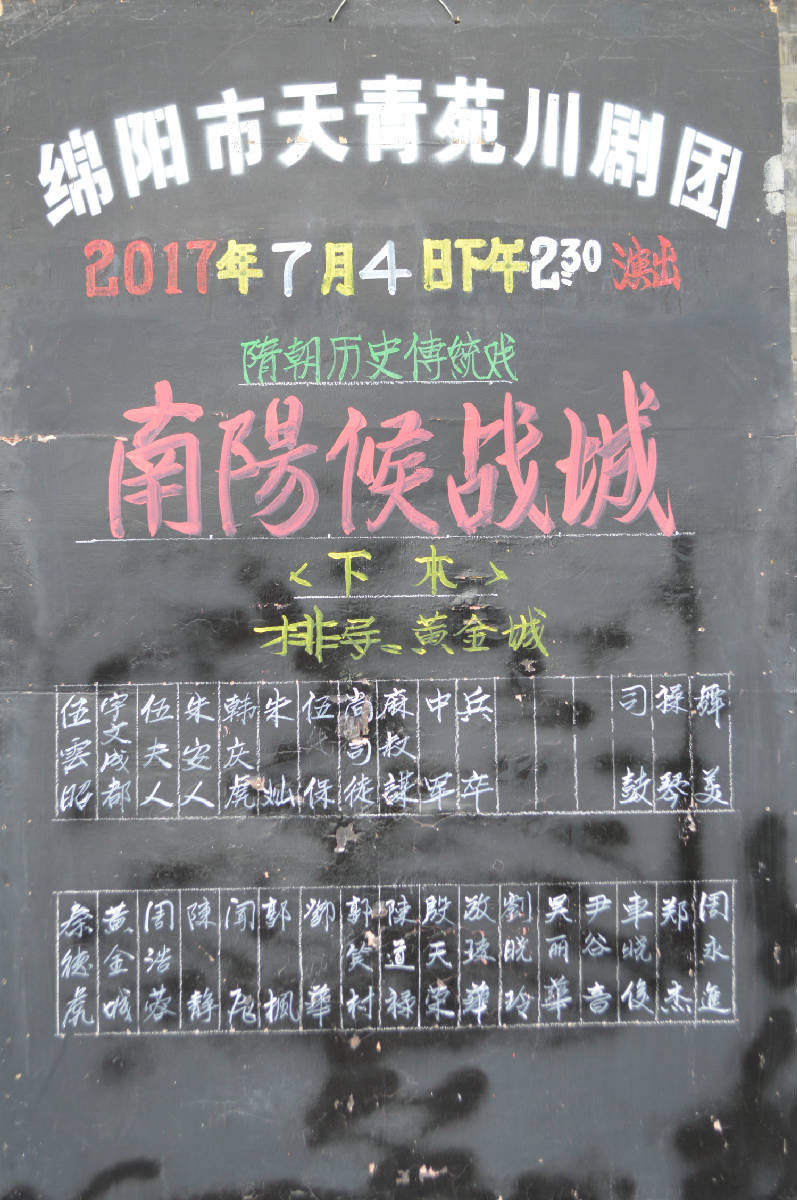 绵阳市天青苑川剧团
2017年7月4日下午2:30 演出
隋朝历史傳統戏
南陽候战城
<下本>
排导：黄金城
伍雲昭 宇文成都 伍夫人 朱安人 韩庆虎 朱灿 伍保 尚司徒 麻叔謀 中军 兵卒 司鼓 操琴 舞美
秦德虎 黄金城 周浩蓉 陳静 闻 郭枫 鄧華 郭笑村 陳道禄 殷天荣 敬琼華 劉晓玲 吴丽華 尹谷音 车晓俊 郑杰 周永進